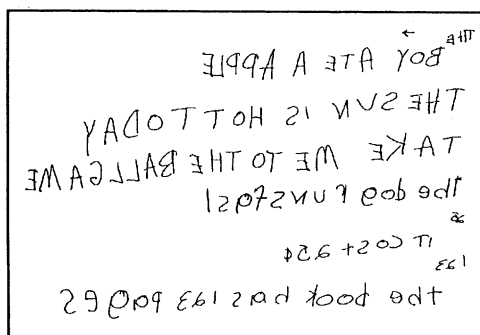 THE
BOY ATE A APPLE
THE SUN IS HOT TODAY
TAKE ME TO THE BALLGAME
the dog runs fast
IT cost
the book has pages